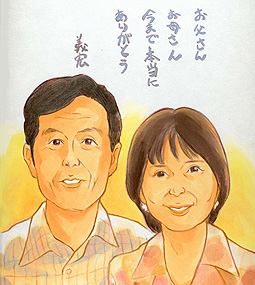 お父さん
お母さん
今まで本当に
ありがとう
義宏